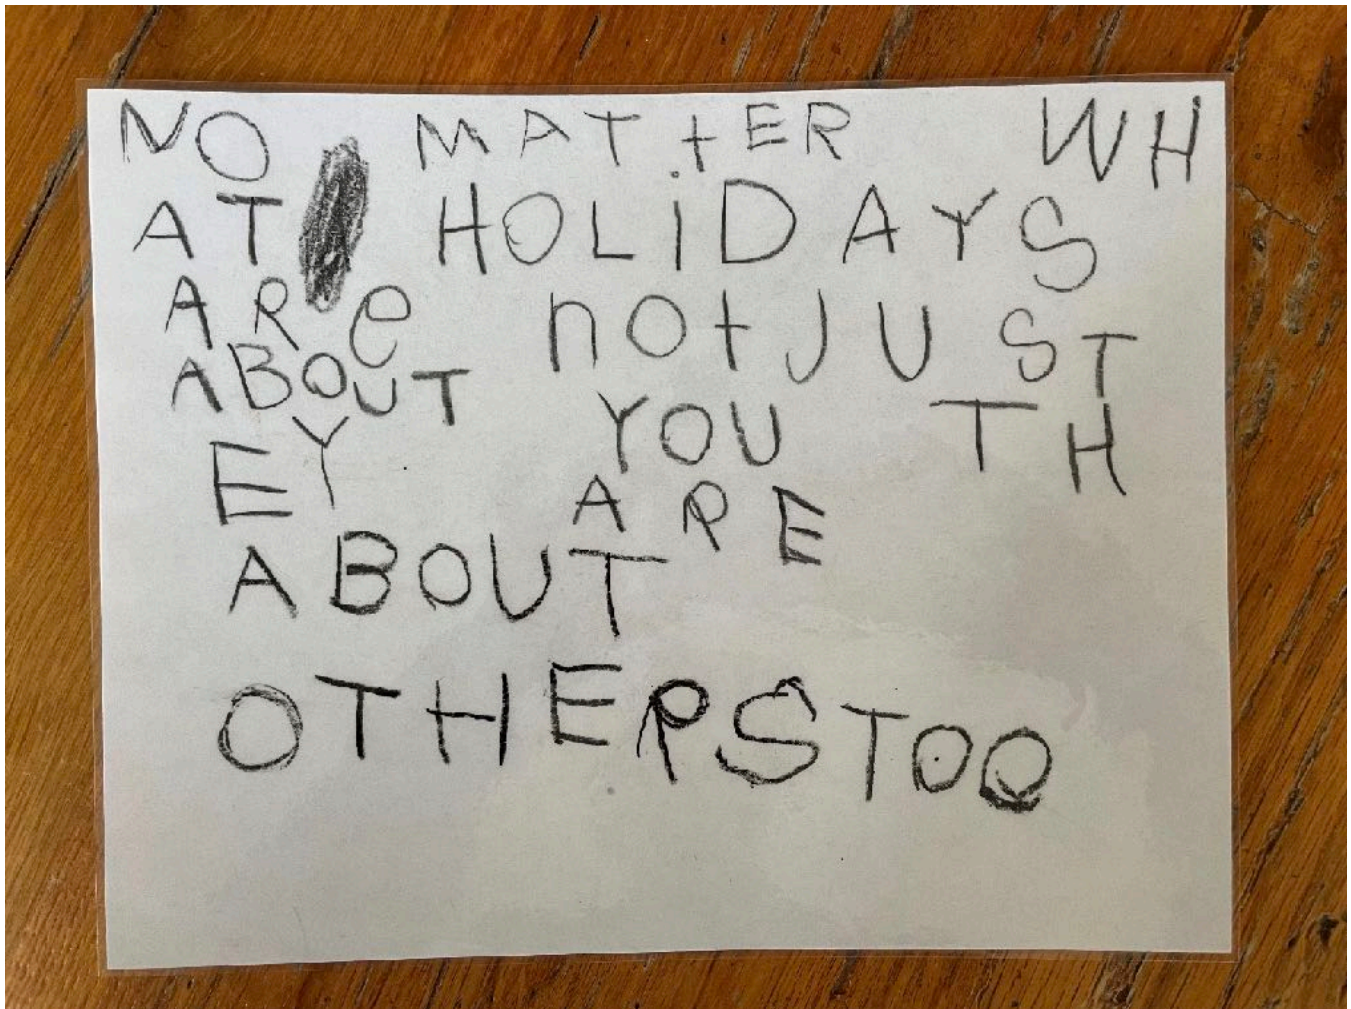 NO MATtER WH
AT HOLiDAYS
ARe notJUST
ABOUT YOU TH
EY ARE
ABOUT
OTHERSTOO